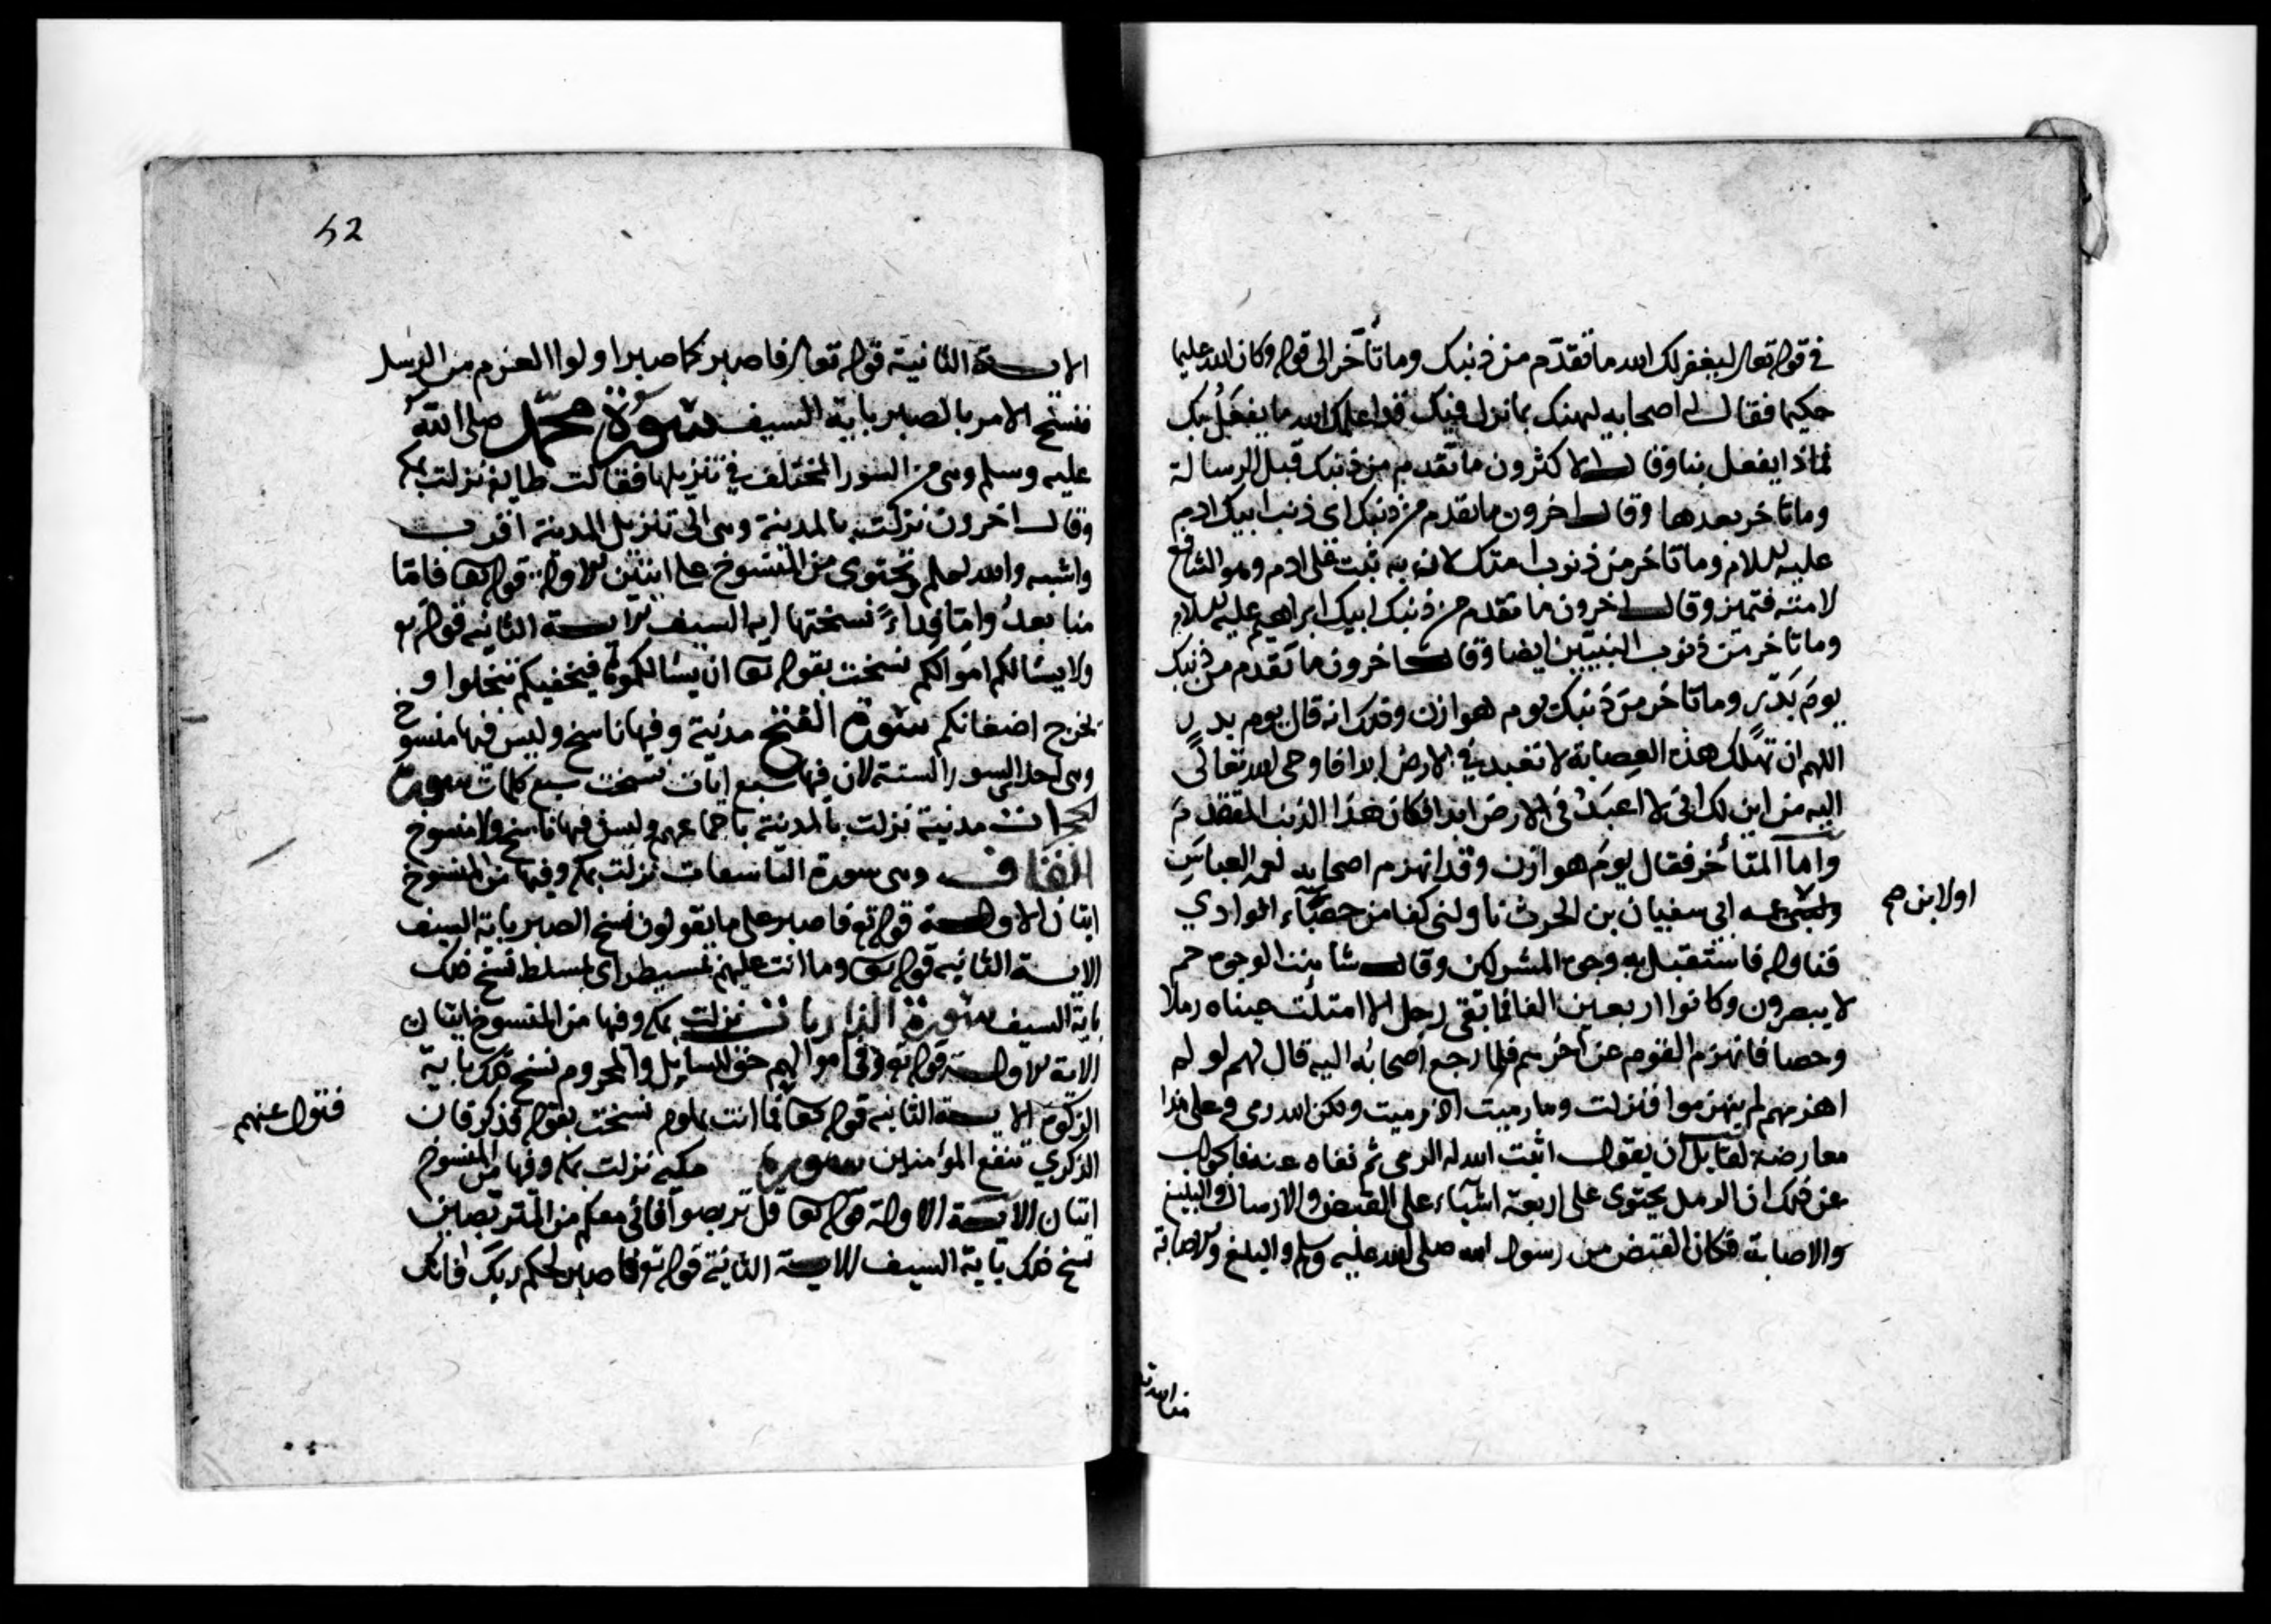 في قوله تعالى ليغفر لك الله ما تقدّم من ذنبك وما تأخر الى قوله وكان الله عليما
حكيما فقال له اصحابه ليهنك بما نزل فيك قد اعلمك الله ما يفعل بك
فماذا يفعل بنا وقال الاكثرون ما تقدم من ذنبك قبل الرسالة
وما تاخر بعدها وقال اخرون ما تقدم من ذنبك اى ذنب ابيك ادم
عليه السلام وما تاخر من ذنوب امتك لانه به تيب على ادم وهو الشافع
لامته فتمنن وقال اخرون ما تقدم من ذنبك ابيك ابراهيم عليه السلام
وما تاخر من ذنوب النبيّين ايضا وقال اخرون ما تقدم من ذنبك
يوم بدر وما تاخر من ذنبك يوم هوازن وذلك انه قال يوم بدر
اللهم ان تهلك هذه العصابة لا تعبد في الارض ابدا فاوحى الله تعالى
اليه من اين لك انى لا اعبد في الارض ابدا فكان هذا الذنب المتقدم
واما المتأخر فقال يوم هوازن وقد انهزم اصحابه لعمه العباس
ولابن عمه ابي سفيان بن الحرث ناولنى كفا من حصباء الوادي
اولابن صح
فناوله فاستقبل به وجوه المشركين وقال شاهت الوجوه حم
لا يبصرون وكانوا اربعين الفا فما بقى رجل الا امتلئت عيناه رملا
وحصا فانهزم القوم عن اخرهم فلما رجع اصحابه اليه قال لهم لو لم
اهزمهم لم ينهزموا فنزلت وما رميت اذ رميت ولكن الله رمى وعلى هذا
معارضة لقايل ان يقول اثبت الله له الرمى ثم نفاه عنه فالجواب
عن ذلك ان الرمل يحتوى على اربعة اشياء على القبض والارسال والتبليغ
والاصابة فكان القبض من رسول الله صلى الله عليه وسلم والتبليغ والاصابة
من الله
52
الاية الثانية قوله تعالى فاصبر كما صبر اولوا العزم من الرسل
فنسخ الامر بالصبر باية السيف سورة محمد صلى الله
عليه وسلم وهى من السور المختلف في تنزيلها فقالت طايفة نزلت بمكة
وقال اخرون نزلت بالمدينة وهى الى تنزيل المدينة اقرب
واشبه والله اعلم تحتوى من المنسوخ على ايتين الاولى قوله تعا فامّا
منا بعدُ وامّا فداءً نسختها اية السيف الاية الثانية قوله تع
ولا يسئالكم اموالكم نسخت بقوله تعا ان يسئالكموها فيحفيكم تبخلوا و
يخرج اضغانكم سورة الفتح مدنية وفيها ناسخ وليس فيها منسوخ
وهى احد السور الستة لان فيها سبع ايات نسخت سبع كلمات سورة
الحجرات مدنية نزلت بالمدينة باجماعهم وليس فيها ناسخ ولا منسوخ
القاف وهى سورة الباسقات نزلت بمكة وفيها من المنسوخ
ايتان الاولى قوله تع فاصبر على ما يقولون نسخ الصبر باية السيف
الاية الثانية قوله تعا وما انت عليهم بمسيطر اى بمسلط نسخ ذلك
باية السيف سورة الذاريات نزلت بمكة وفيها من المنسوخ ايتان
الاية الاولى قوله تع وفي اموالهم حق للسايل والمحروم نسخ ذلك باية
الزكوة الاية الثانية قوله تعا فما انت بملوم نسخت بقوله فذكر فان
فتول عنهم
الذكري تنفع المؤمنين سورة مكية نزلت بمكة وفيها من المنسوخ
ايتان الاية الاولى قوله تعا قل تربصوا فانى معكم من المتربصين
نسخ ذلك باية السيف الاية الثانية قوله تع فاصبر لحكم ربك فانك